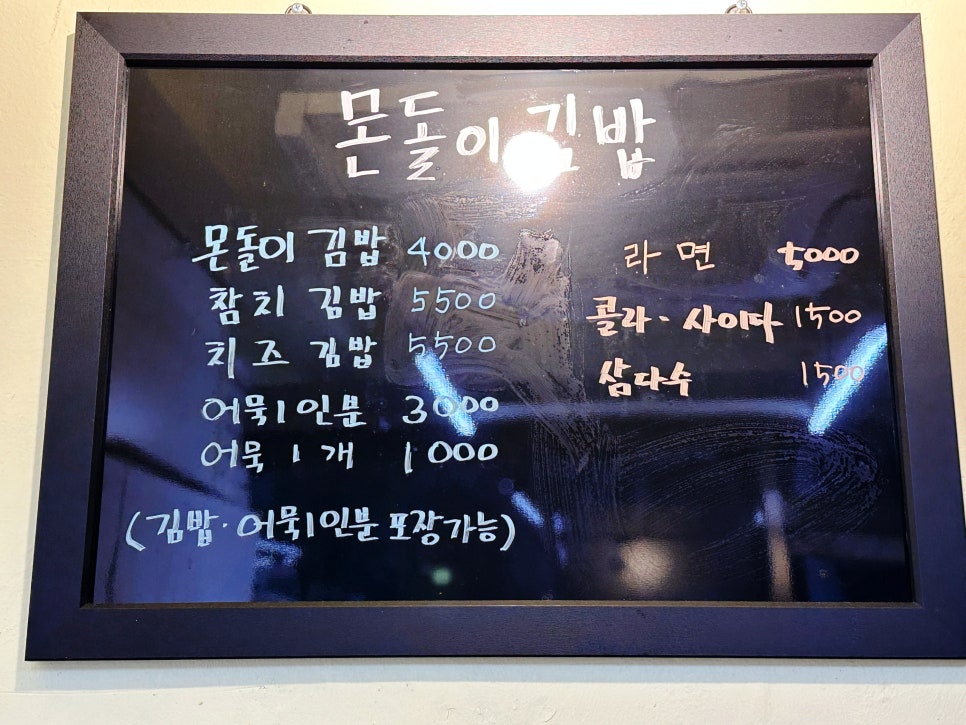 몬돌이 김밥
몬돌이 김밥 4000
참치 김밥 5500
치즈 김밥 5500
어묵 1인분 3000
어묵 1개 1000
(김밥·어묵 1인분 포장가능)
라면 5000
콜라·사이다 1500
삼다수 1500